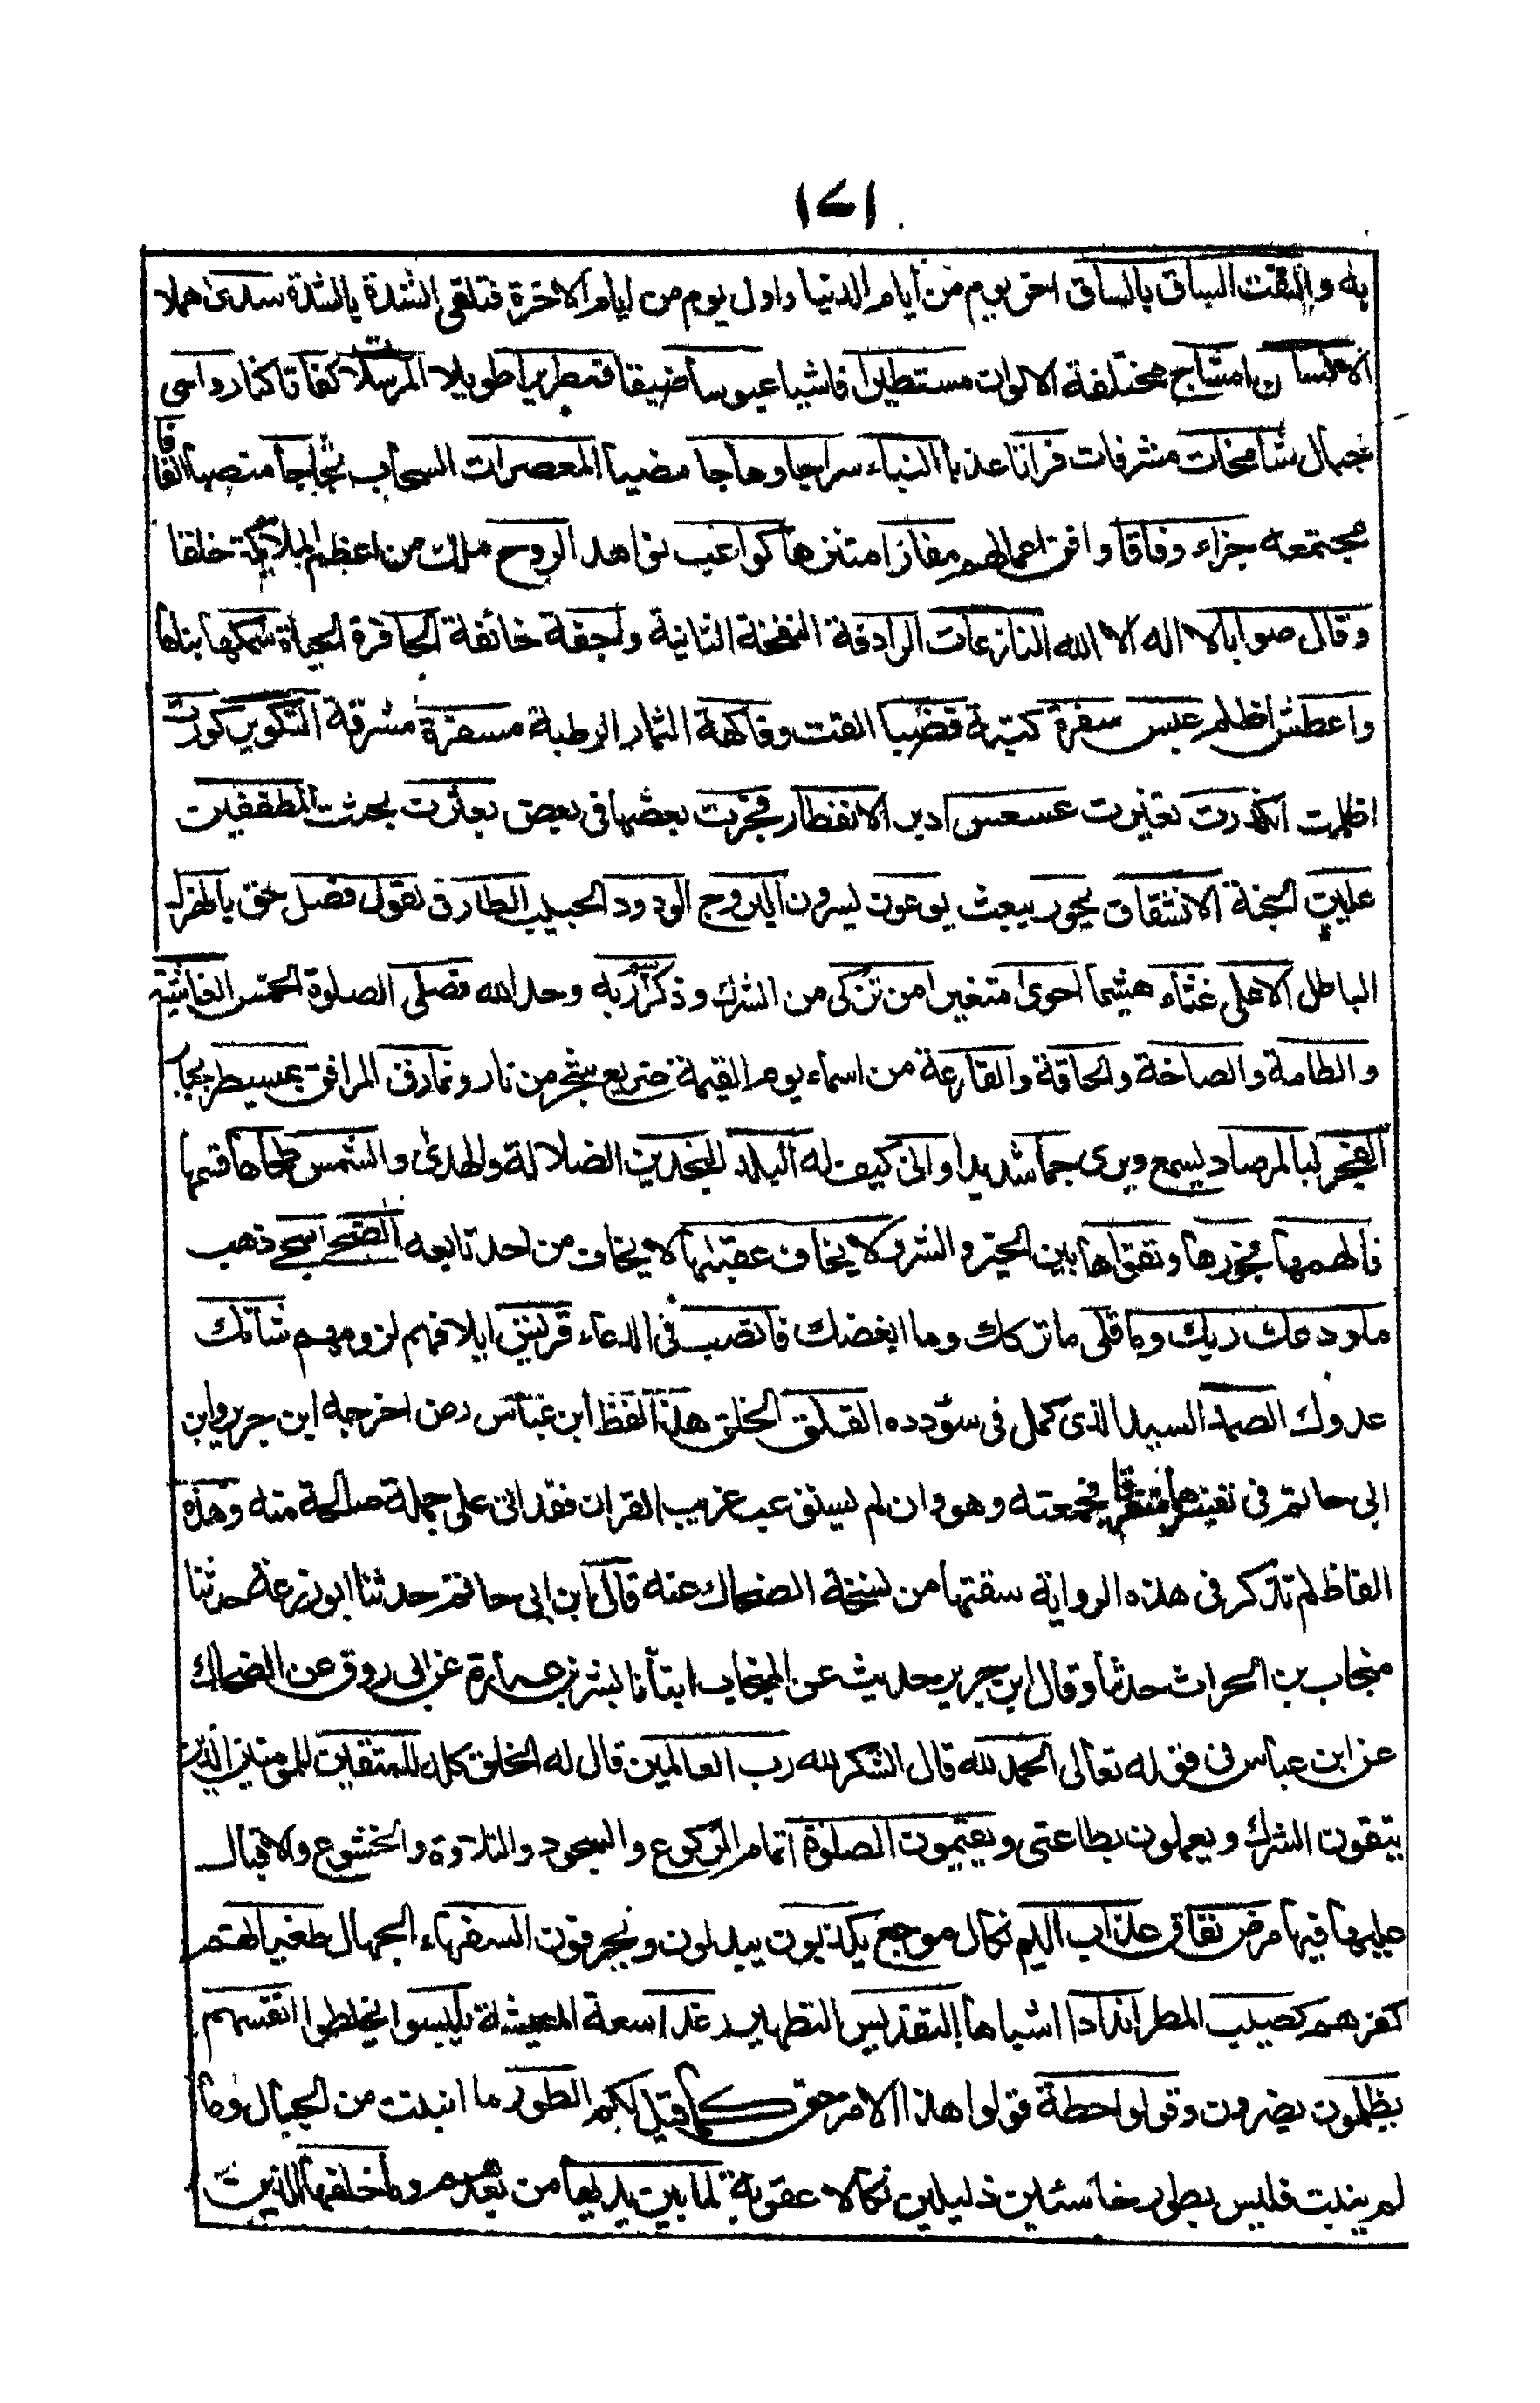 ١٤١
به والتفت الساق بالساق اخر يوم من أيام الدنيا واول يوم من ايام الاخرة فتلقى الشدة بالشدة سدى هملا
الانسان امشاج مختلفة الالوان مستطيرا فاشيا عبوسا ضيقا قمطريرا طويلا المرسلا كفاتا كنا رواسي
جبال شامخات مشرفات فراتا عذبا النباء سراجا وهاجا مضيا المعصرات السحاب ثجاجا منصبا الفافا
مجتمعه جزاء وفاقا وافق اعمالهم مفازا متنزها كواعب نواهد الروح ملك من اعظم الملائكة خلقا
وقال صوابا لا اله الا الله النازعات الرادفة النفخة الثانية واجفة خائفة الحافرة الحياة سمكها بناها
واعطش اظلم عبس سفرة كتبة قضبا القت وفاكهة الثمار الرطبة مسفرة مشرقة التكوير كورت
اظلمت انكدرت تغيرت عسعس ادبر الانفطار فجرت بعضها في بعض بعثرت بحثت المطففين
عليين الجنة الانشقاق يحور يبعث يوعون يسرون البروج الودود الحبيب الطارق لقول فصل حق بالهزل
الباطل الاعلى غثاء هشيما احوى متغيرا من تزكى من الشرك وذكر اسم ربه وحد الله فصلى الصلوة الخمس الغاشية
والطامة والصاخة والحاقة والقارعة من اسماء يوم القيمة ضريع شجر من نار ونمارق المرافق بمسيطر بجبار
الفجر لبالمرصاد يسمع ويرى جما شديدا وانى كيف له البلد النجدين الضلالة والهدى والشمس طحاها قسمها
فالهمها فجورها وتقواها بين الخير والشر ولا يخاف عقبيها لا يخاف من احد تابعه الضحى سجى ذهب
ما ودعك ربك وما قلى ما تركك وما ابغضك فانصب في الدعاء قريش ايلافهم لزومهم شانئك
عدوك الصمد السيد الذي كمل في سؤدده الفلق الخلق هذا لفظ ابن عباس رض اخرجه ابن جرير وابن
ابي حاتم في تفسيرهما متفرقا فجمعته وهو وان لم يستوعب غريب القران فقد اتى على جملة صالحة منه وهذه
الفاظ لم تذكر في هذه الرواية سقتها من نسخة الضحاك عنه قال ابن ابي حاتم حدثنا ابو زرعة حدثنا
منجاب بن الحراث حدثنا وقال ابن جرير حديث عن المنجاب انبأنا بشر بن عمارة عن ابي روق عن الضحاك
عن ابن عباس في قوله تعالى الحمد لله قال الشكر لله رب العالمين قال له الخلق كله للمتقين للمومنين الذين
يتقون الشرك ويعملون بطاعتي ويقيمون الصلوة اتمام الركوع والسجود والتلاوة والخشوع والاقبال
عليها فيها مرض نفاق عذاب اليم نكال موجع يكذبون يبدلون ويحرفون السفهاء الجهال طغيانهم
كفرهم كصيب المطر اندادا اشباها التقديس التطهير رغدا سعة المعيشة تلبسوا تخلطوا انفسهم
يظلمون يضرون وقولوا حطة قولوا هذا الامر حق كما قيل لكم الطور ما انبت من الجبال وما
لم ينبت فليس بطور خاسئين ذليلين نكالا عقوبة لما بين يديها من بعدهم وما خلفها الذين